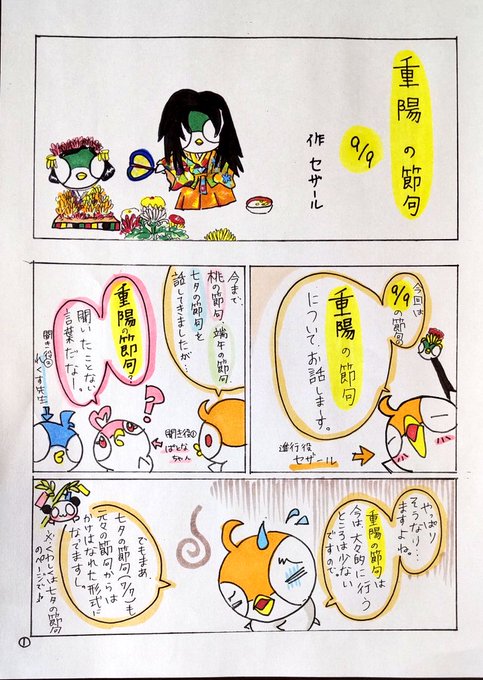 重陽の節句
9/9
作 セザール
今回は
9/9の節句
重陽の節句
について、お話します。
進行役
セザール
今まで、
桃の節句 端午の節句
七夕の節句を
話してきましたが…
重陽の節句?
聞いたことない
言葉だなー。
?
聞き役①
ぱとな
ちゃん
聞き役②
れくす先生
やっぱり
そうなり…
ますよね。
重陽の節句は
今は、大々的に行う
ところは少ない
ですので。
でもまあ、
七夕の節句(7/7)も
元々の節句からは
かけはなれた形式に
なってますし。
※くわしくは七夕の節句
のページで♪
①